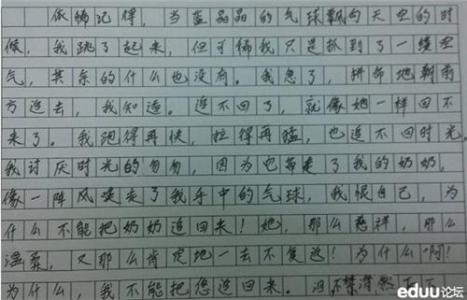 依稀记得，当蓝晶晶的气球飘向天空的时
候，我跳了起来，但可惜我只是抓到了一缕空
气，其余的什么也没有。我急了，拼命地朝前
方追去，我知道。追不回了，就像她一样回不
来了。我跑得再快，拉得再猛，也追不回时光。
我讨厌时光的匆匆，因为它带走了我的奶奶，
像一阵风喽走了我手中的气球，我恨自己，为
什么不能把奶奶追回来！她，那么慈祥，那么
温柔，又那么肯定地一去不复返！为什么啊！
为什么，我不能把您追回来。泪不禁潸然
eduu论坛